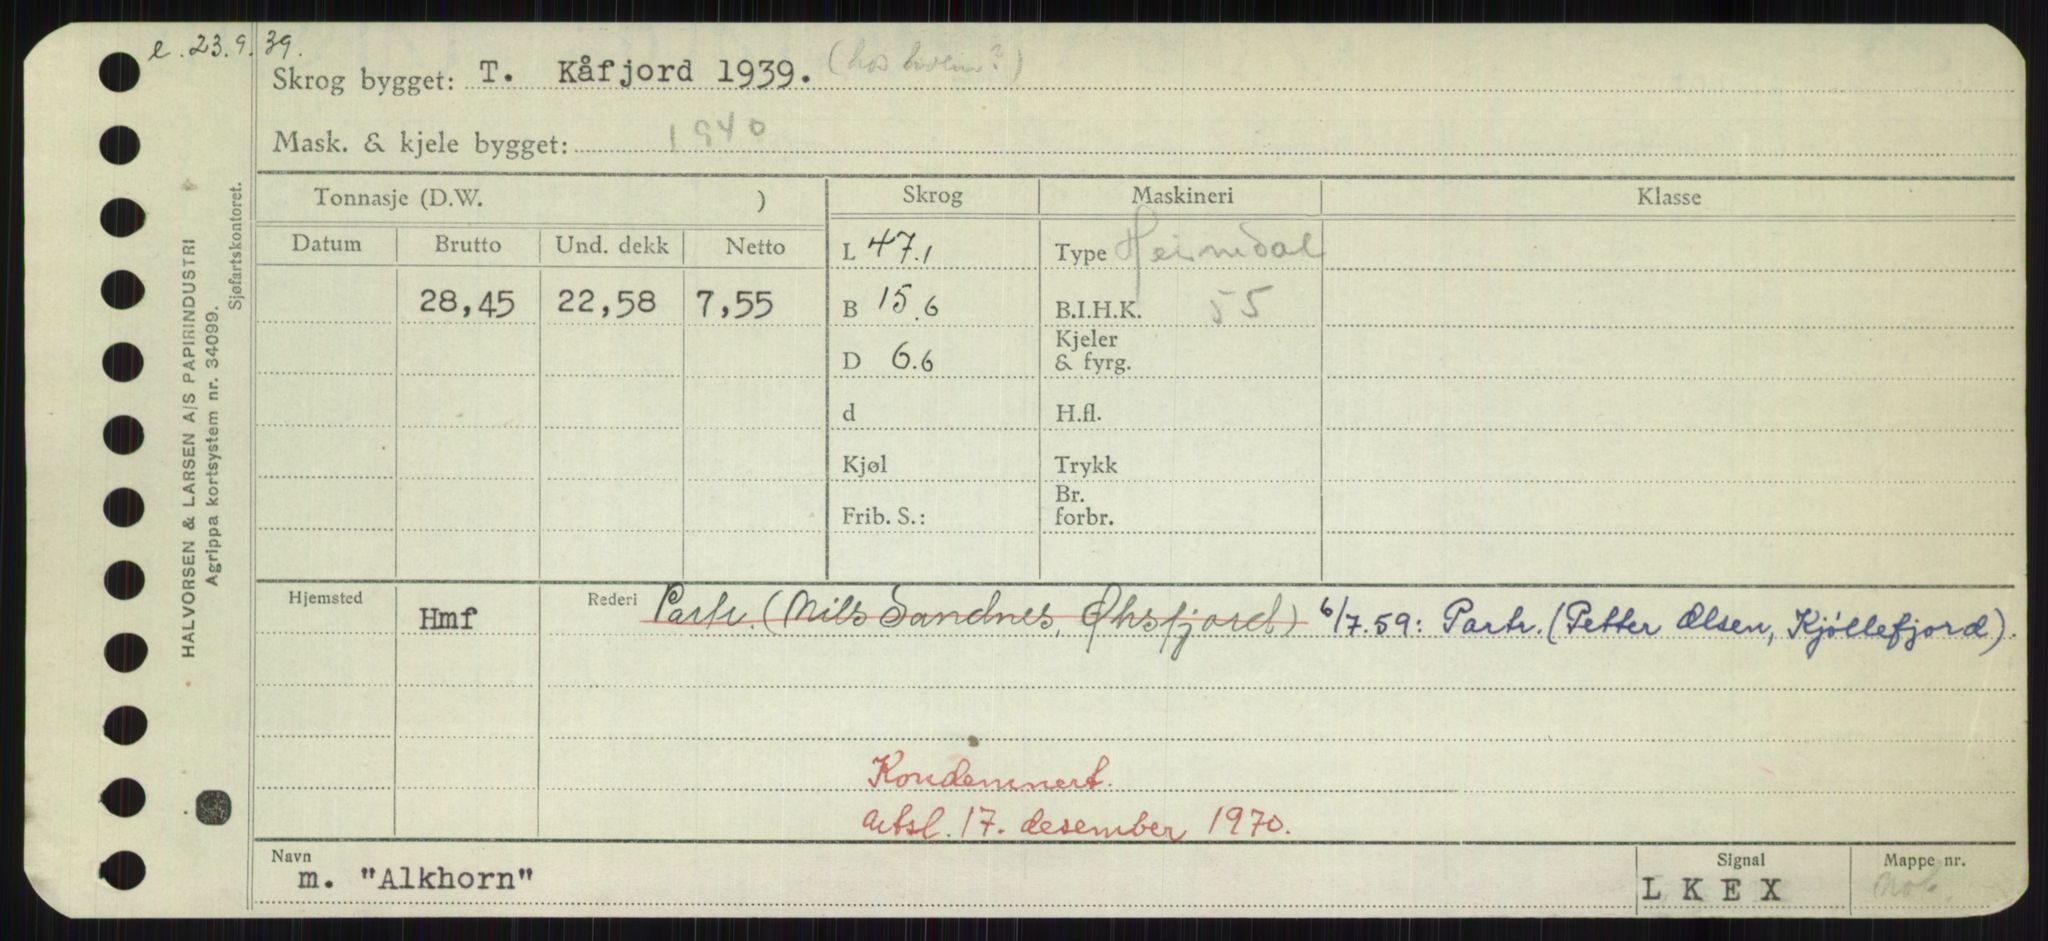 e. 23.9.39.
Skrog bygget: T. Kåfjord 1939.
Mask. & kjele bygget: 1940
Tonnasje (D.W. ) Skrog Maskineri Klasse
Datum Brutto Und. dekk Netto L 47.1 Type Heimdal
28,45 22,58 7,55 B 15.6 B.I.H.K. 55
D 6.6 Kjeler
& fyrg.
d H.fl.
Kjøl Trykk
Br.
Frib. S.: forbr.
Hjemsted Hmf Rederi Partr. (Nils Sandnes, Øksfjord) 6/7.59: Partr. (Petter Olsen, Kjøllefjord).
Kondemnert.
Artsl. 17. desember 1970.
Navn Signal Mappe nr.
m. "Alkhorn" LKEX
HALVORSEN & LARSEN A/S PAPIRINDUSTRI
Agrippa kortsystem nr. 34099.
Sjøfartskontoret.